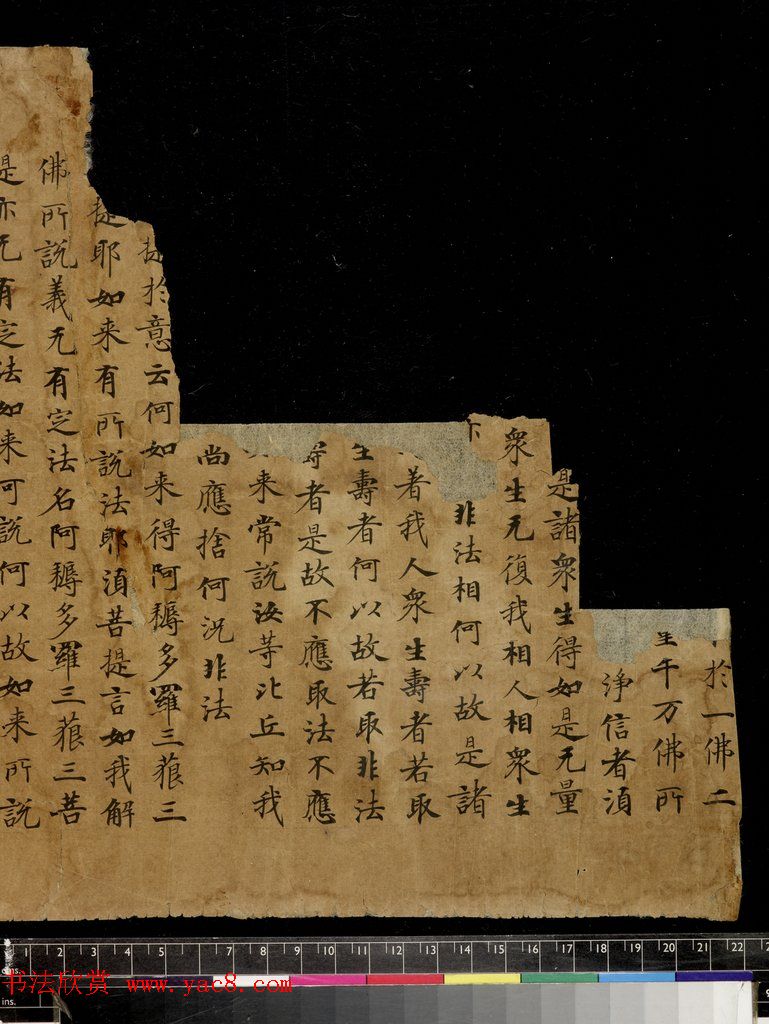 於一佛二
千万佛所
淨信者湏
是諸衆生得如是无量
衆生无復我相人相衆生
非法相何以故是諸
著我人衆生壽者若取
生壽者何以故若取非法
者是故不應取法不應
来常說汝等比丘知我
尚應捨何況非法
提於意云何如来得阿耨多羅三藐三
提耶如来有所說法耶湏菩提言如我解
佛所說義无有定法名阿耨多羅三藐三菩
是亦无有定法如来可說何以故如来所說
1 2 3 4 5 7 8 9 10 11 12 13 14 15 16 17 18 19 20 21 22
cms.
书法欣赏 www.yac8.com
ins.